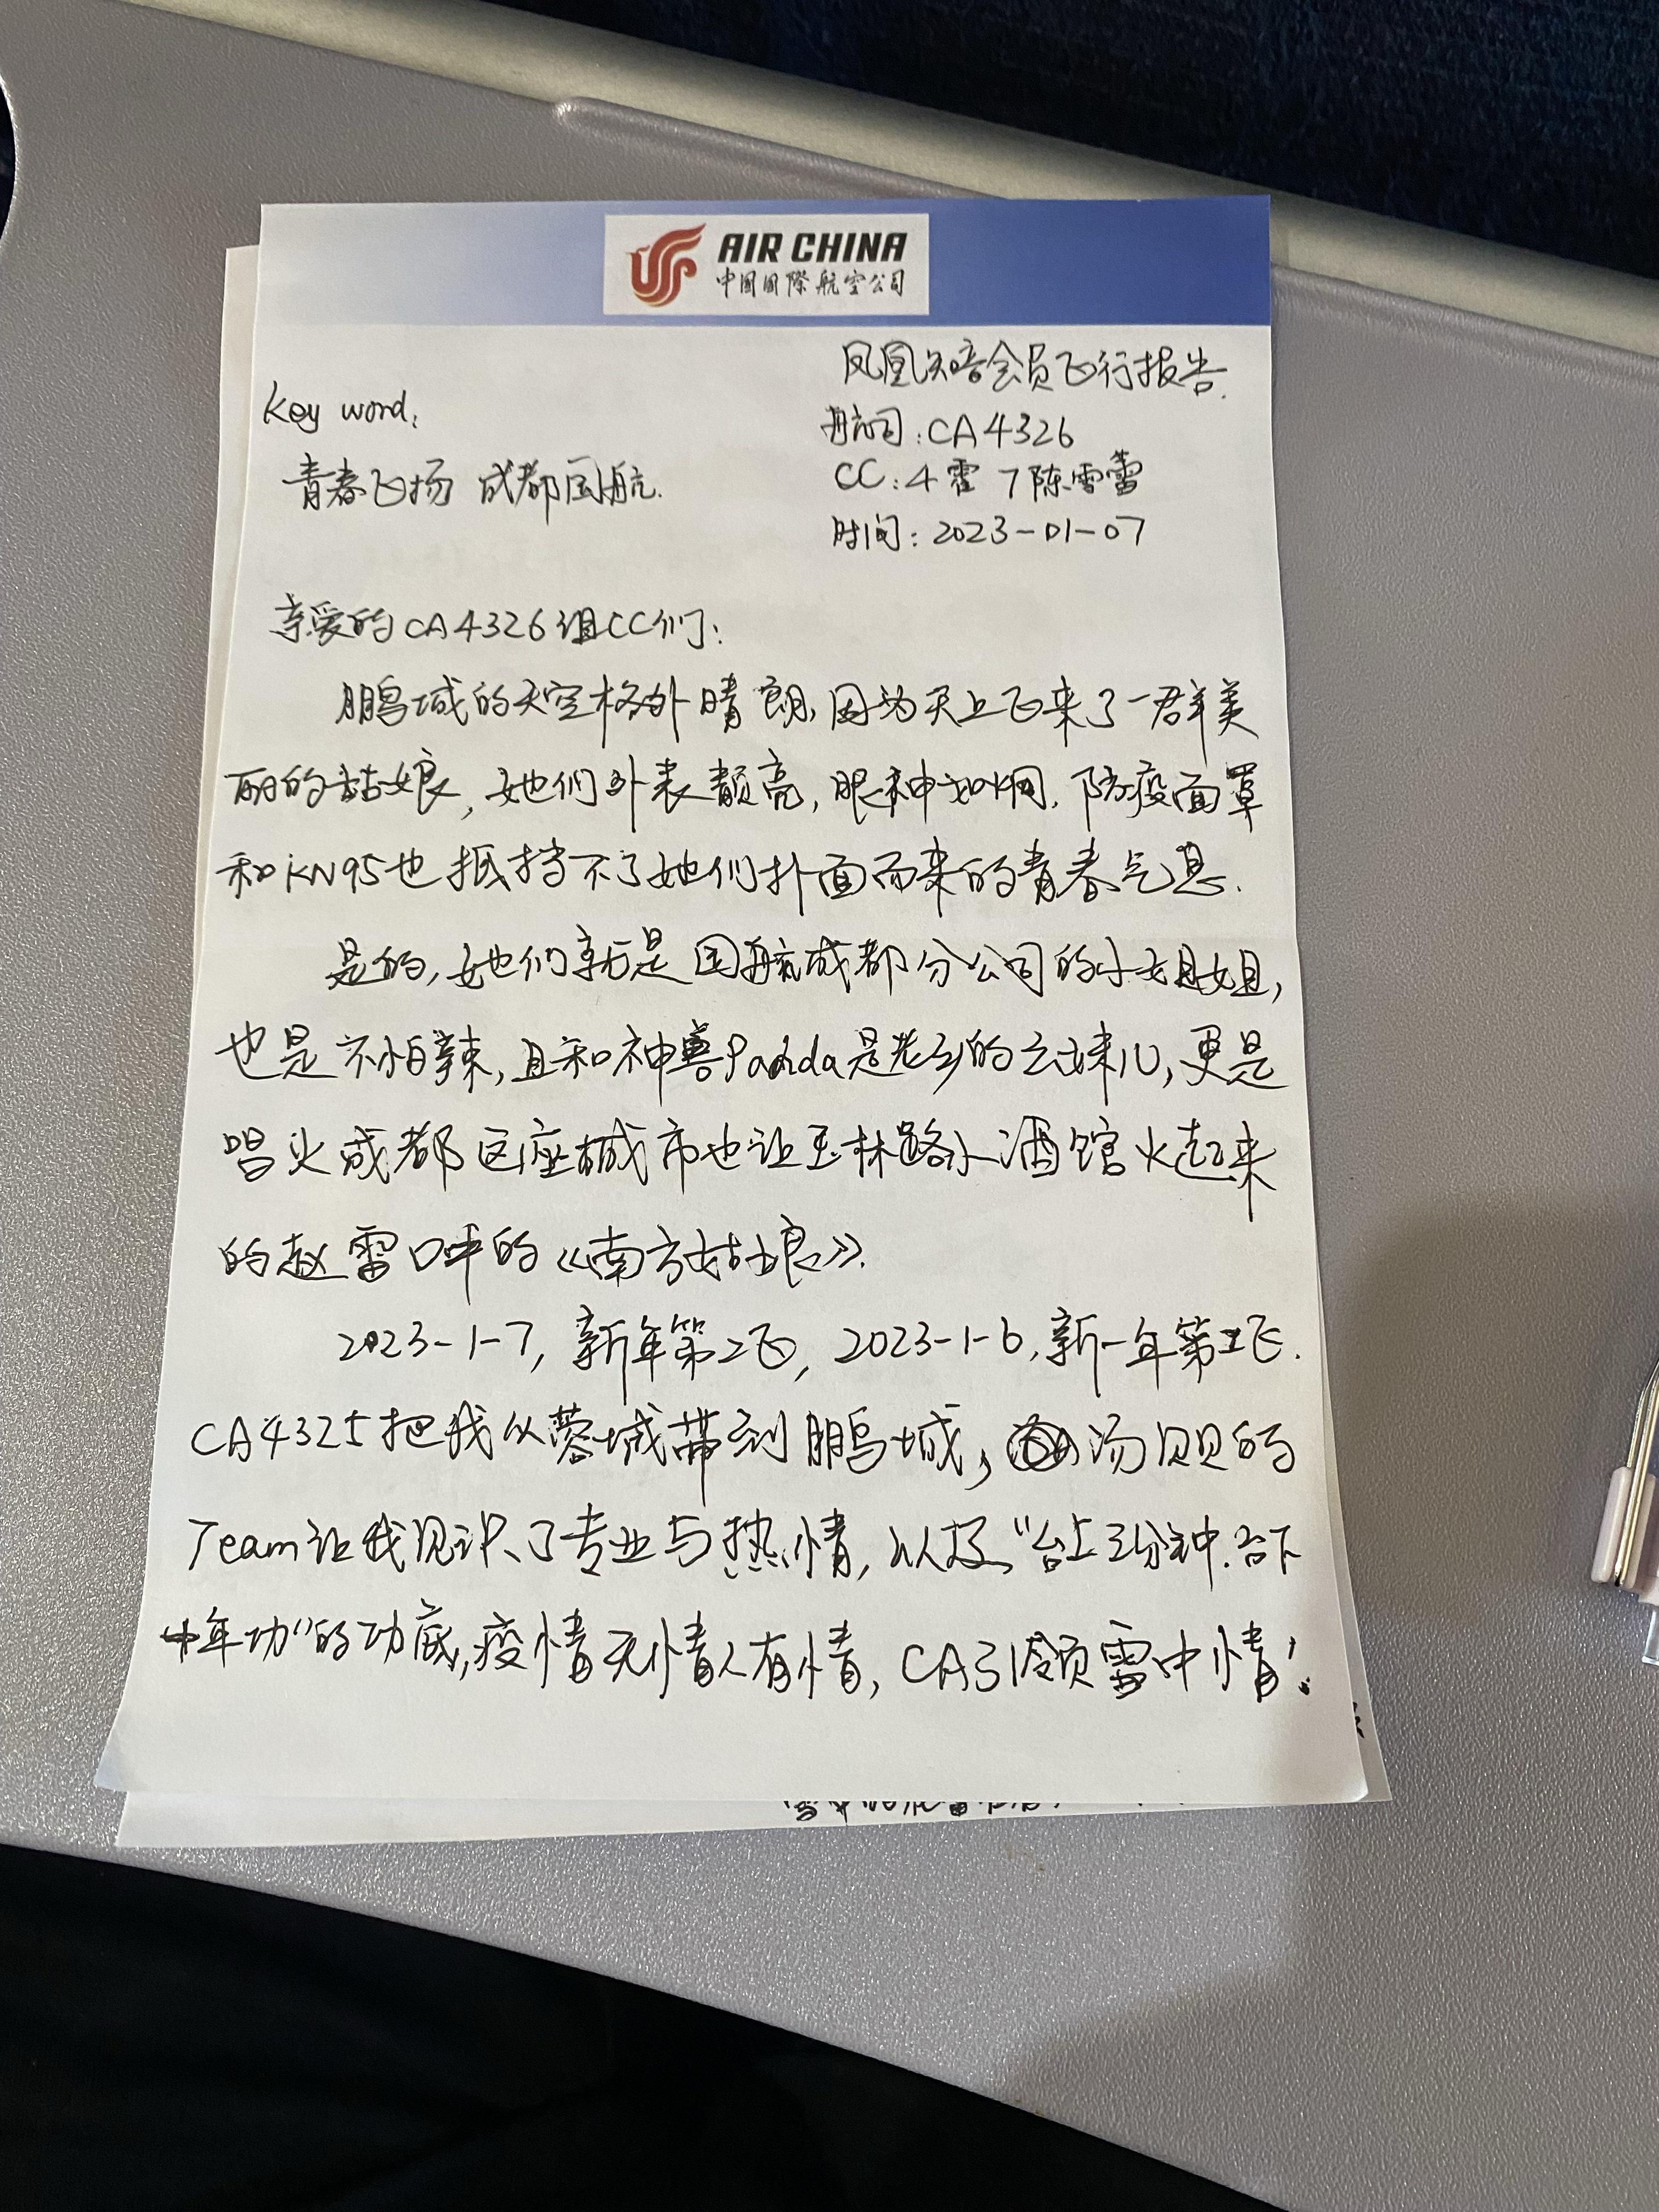 AIR CHINA
中国国際航空公司
凤凰知音会员飞行报告.
Key word:
航司:CA4326
青春飞扬 成都国航.
CC:4霍 7陈雷蕾
时间:2023-01-07
亲爱的CA4326组CC们:
鹏城的天空格外晴朗,因为天上飞来了一群美
丽的姑娘,她们外表靓亮,眼神如炯.防疫面罩
和KN95也抵挡不了她们扑面而来的青春气息.
是的,她们就是国航成都分公司的小姐姐,
也是不怕辣,且和神兽Panda是老乡的幺妹儿,更是
唱火成都这座城市也让玉林路小酒馆火起来
的赵雷口中的《南方姑娘》.
2023-1-7,新年第2飞,2023-1-6,新一年第1飞.
CA4325把我从蓉城带到鹏城,汤贝贝的
Team让我见识了专业与热情,以及"台上3分钟.台下
十年功"的功底,疫情无情人有情,CA引领雪中情!